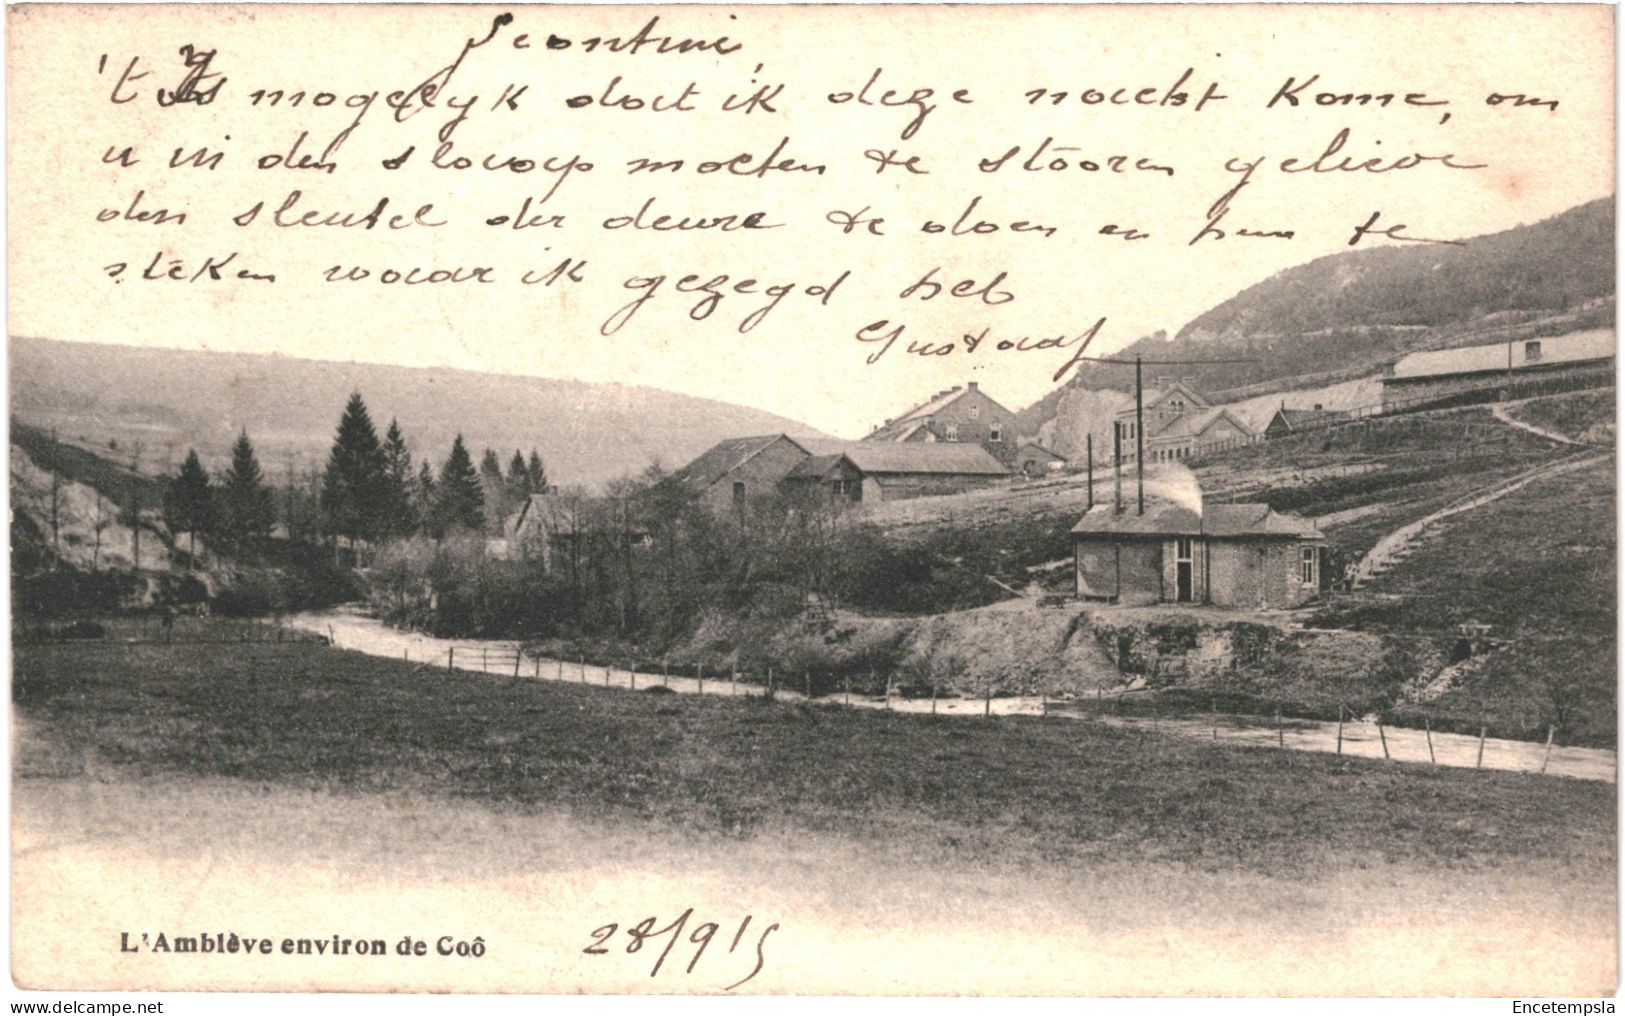 Scontine,
't is mogelyk dat ik deze nacht kome, om
u in den slaap moeten te stooren gelieve
den sleutel der deure te doen en hem te
steken waar ik gezegd heb
Gustaaf
L'Amblève environ de Coô
28/915
Encetempsla